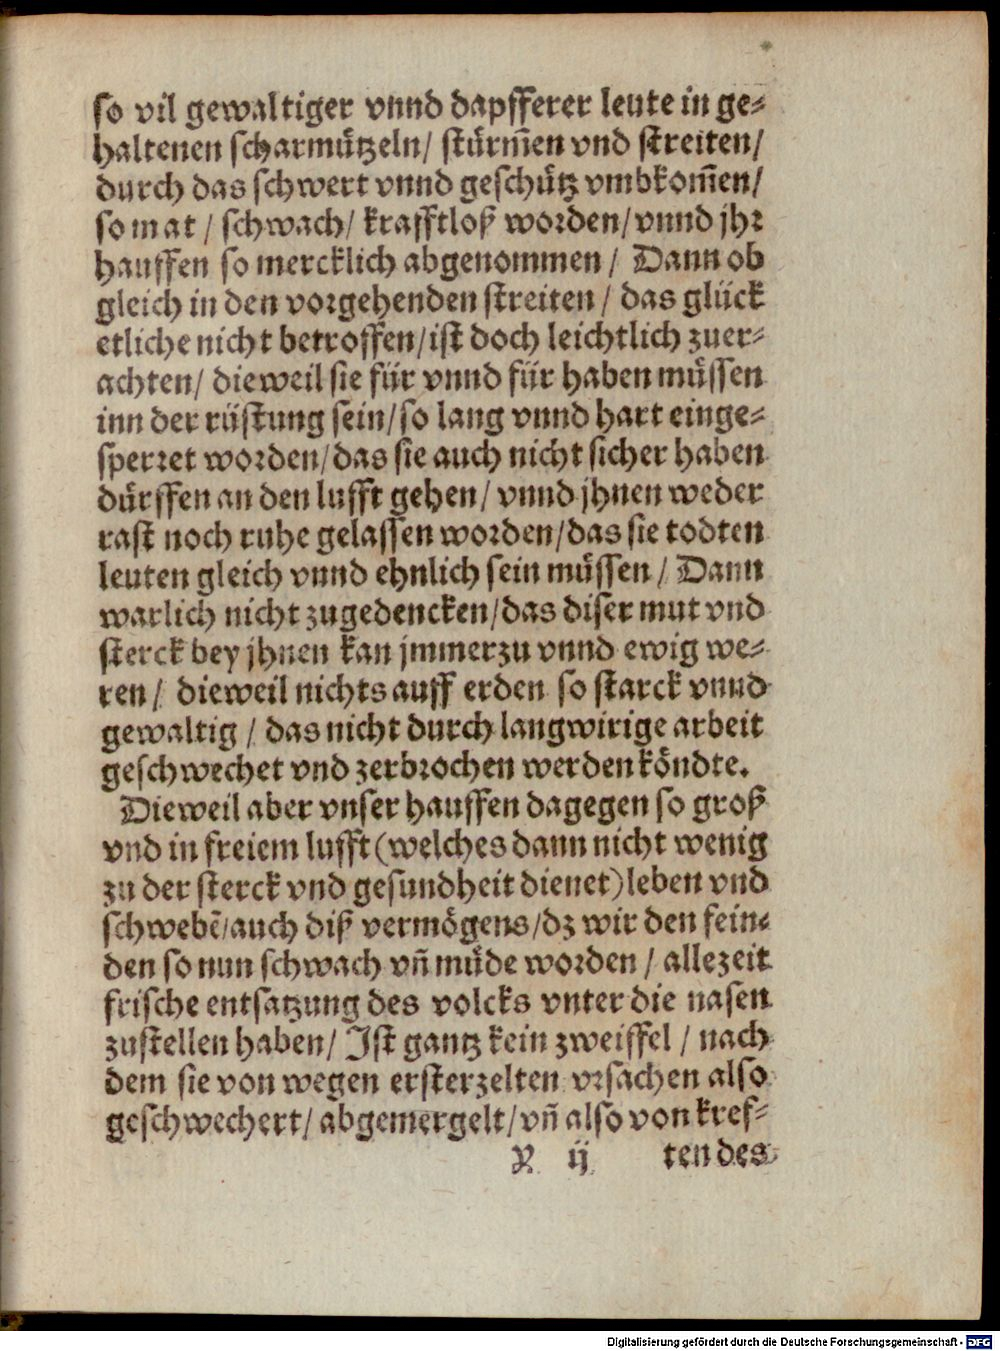 so vil gewaltiger vnnd dapfferer leute in ge-
haltenen scharmützeln/ stürm̃en vnd streiten/
durch das schwert vnnd geschütz vmbkom̃en/
so mat / schwach/ krafftloß worden/ vnnd jhr
hauffen so mercklich abgenommen / Dann ob
gleich in den vorgehenden streiten / das glück
etliche nicht betroffen/ ist doch leichtlich zuer-
achten/ dieweil sie für vnnd für haben müssen
inn der rüstung sein/ so lang vnnd hart einge-
sperret worden/ das sie auch nicht sicher haben
dürffen an den lufft gehen/ vnnd jhnen weder
rast noch ruhe gelassen worden/ das sie todten
leuten gleich vnnd ehnlich sein müssen / Dann
warlich nicht zugedencken/ das diser mut vnd
sterck bey jhnen kan jmmerzu vnnd ewig we-
ren / dieweil nichts auff erden so starck vnnd
gewaltig / das nicht durch langwirige arbeit
geschwechet vnd zerbrochen werden köndte.
Dieweil aber vnser hauffen dagegen so groß
vnd in freiem lufft (welches dann nicht wenig
zu der sterck vnd gesundheit dienet) leben vnd
schwebẽ/ auch diß vermögens/ dz wir den fein-
den so nun schwach vñ müde worden / allezeit
frische entsatzung des volcks vnter die nasen
zustellen haben/ Ist gantz kein zweiffel / nach
dem sie von wegen ersterzelten vrsachen also
geschwechert/ abgemergelt/ vñ also von kref-
Y ij ten des
Digitalisierung gefördert durch die Deutsche Forschungsgemeinschaft - DFG